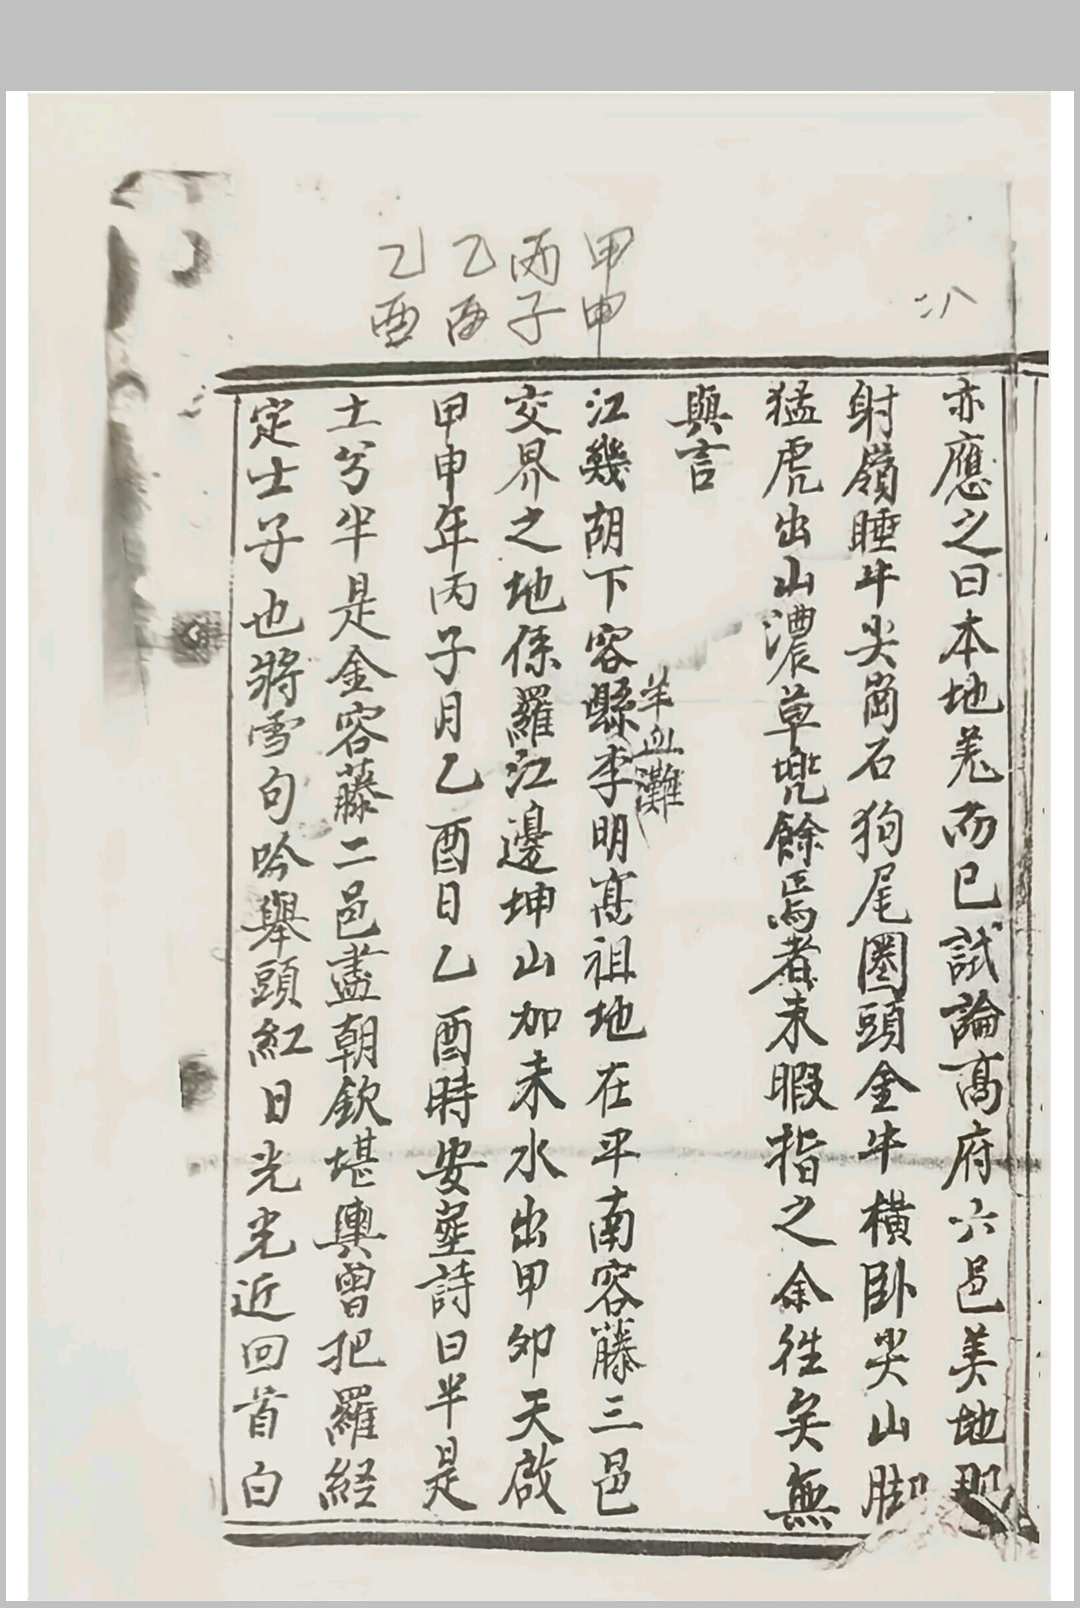 二八
甲申
丙子
乙酉
乙酉
亦應之曰本地羗而已試論高府六邑美地那
射嶺睡牛尖崗石狗尾圈頭金牛橫卧尖山脚
猛虎出山濃草兠餘焉者未暇指之余徃矣無
與言
羊血灘
江幾胡下容縣李明髙祖地在平南容藤三邑
交界之地係羅江邊坤山加未水出甲夘天啟
甲申年丙子月乙酉日乙酉時安塟詩曰半是
土兮半是金容藤二邑盡朝欽堪輿曾把羅経
定士子也將雪句吟舉頭紅日光光近回首白